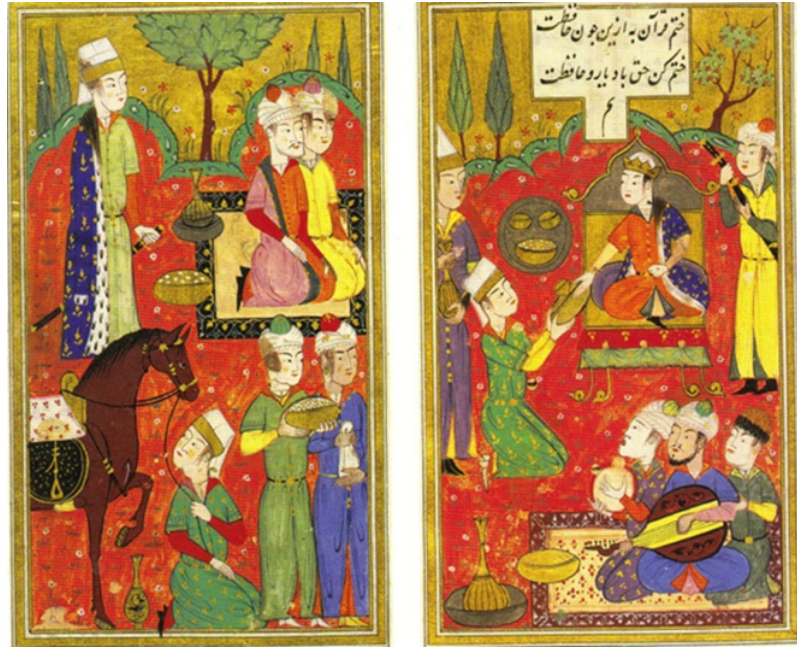 ختم قرآن به ازین چون حافظت
ختم کن حق باد یار و حافظت
تم